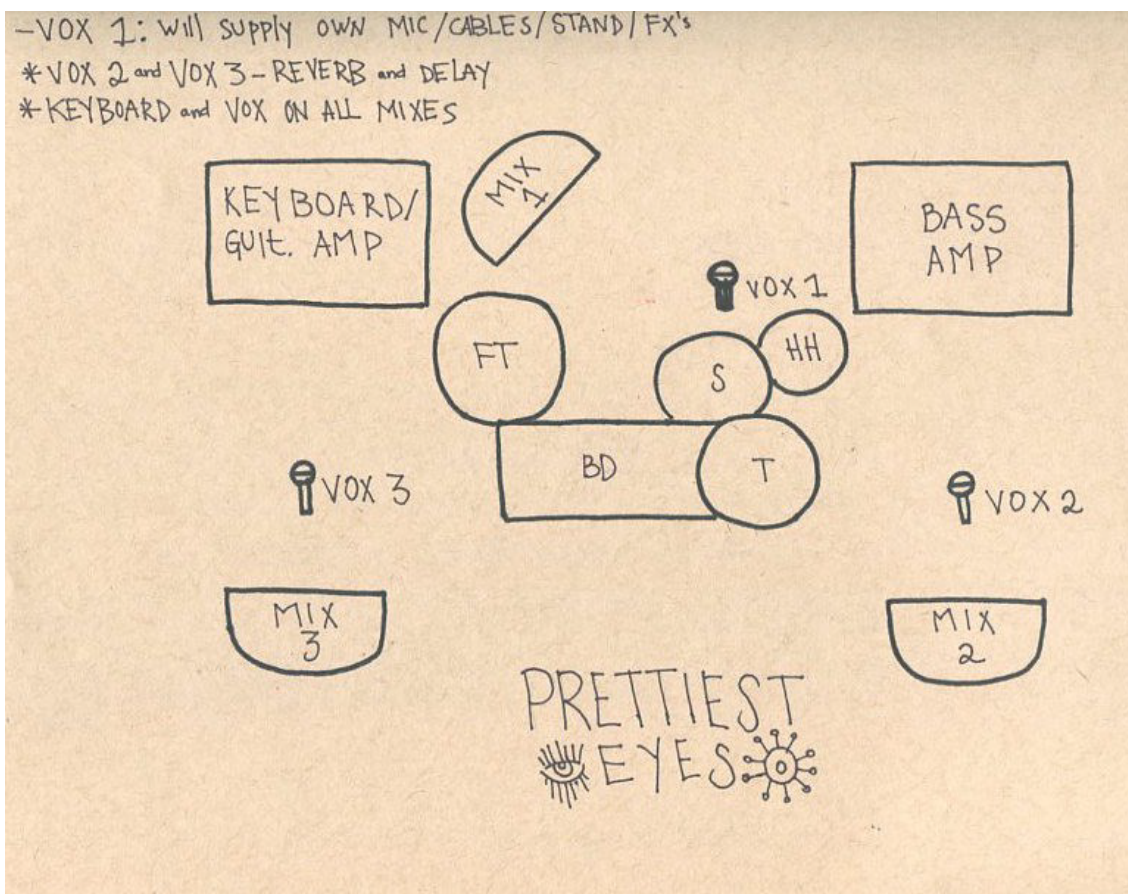 -VOX 1: Will SUPPLY OWN MIC/CABLES/STAND/FX's
*VOX 2 and VOX 3-REVERB and DELAY
*KEYBOARD and VOX ON ALL MIXES
MIX
1
KEYBOARD/
GUIt. AMP
BASS
AMP
VOX 1
FT
S
HH
BD
T
VOX 3
VOX 2
MIX
3
MIX
2
PRETTIEST
EYES